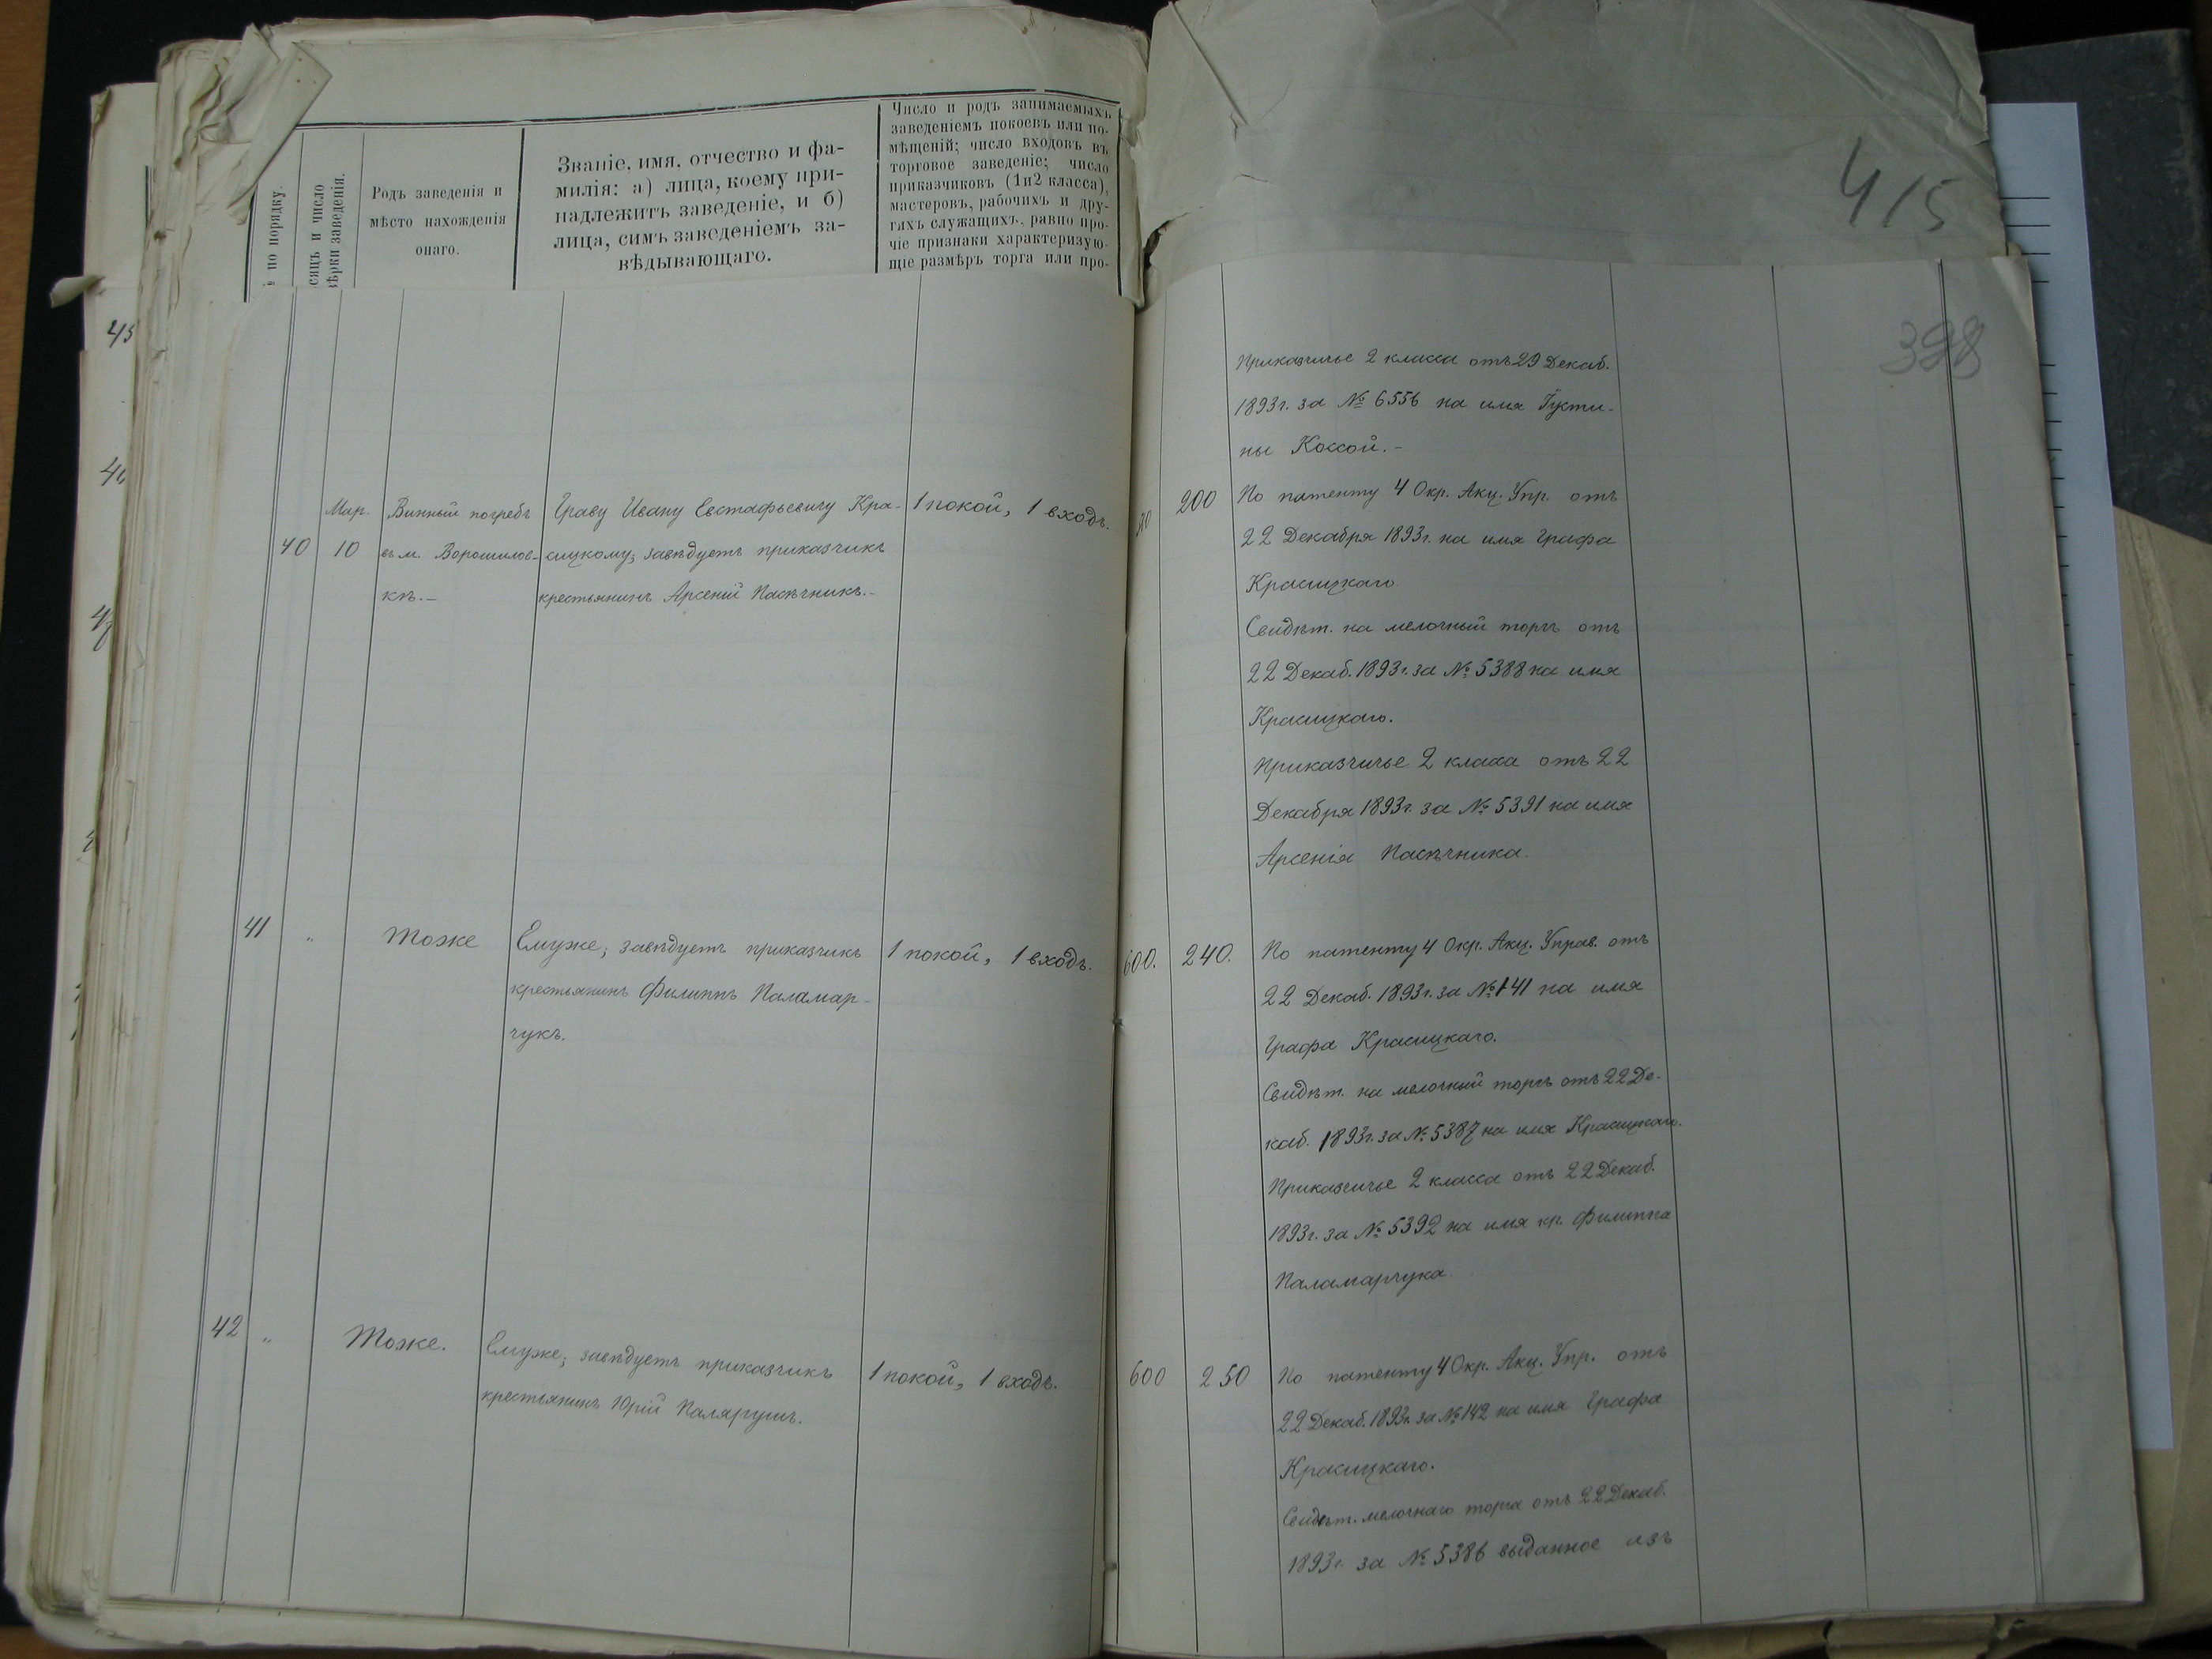 по порядку.
сяцъ и число
вѣрки заведенія.
Родъ заведенія и
мѣсто нахожденія
онаго.
Званіе, имя, отчество и фа-
милія: а) лица, коему при-
надлежитъ заведеніе, и б)
лица, симъ заведеніемъ за-
вѣдывающаго.
Число и родъ занимаемыхъ
заведеніемъ покоевъ или по-
мѣщеній; число входовъ въ
торговое заведеніе; число
приказчиковъ (1и2 класса),
мастеровъ, рабочихъ и дру-
гихъ служащихъ, равно про-
чіе признаки характеризую-
щіе размѣръ торга или про-
40
Мар.
10
Винный погребъ
въ м. Ворошилов-
кѣ.—
Графу Ивану Евстафьевичу Кра-
сицкому; завѣдуетъ приказчикъ
крестьянинъ Арсеній Пасѣчникъ.-
1 покой, 1 входъ.
41
"
Тоже
Емуже; завѣдуетъ приказчикъ
крестьянинъ Филиппъ Паламар-
чукъ.
1 покой, 1 входъ.
42
"
Тоже.
Емуже; завѣдуетъ приказчикъ
крестьянинъ Юрій
1 покой, 1 входъ.
415
398
Приказчичье 2 класса отъ 29 Декаб.
1893г. за № 6556 на имя Густи-
ны Коссой.-
200
По патенту 4 Окр. Акц. Упр. отъ
22 Декабря 1893г. на имя Графа
Красицкаго
Свидѣт. на мелочный торгъ отъ
22 Декаб. 1893г. за № 5388 на имя
Красицкаго.
Приказчичье 2 класса отъ 22
Декабря 1893г. за № 5391 на имя
Арсенія Пасѣчника.
600.
240.
По патенту 4 Окр. Акц. Управ. отъ
22 Декаб. 1893г. за № 141 на имя
Графа Красицкаго.
Свидѣт. на мелочный торгъ отъ 22 Де-
каб. 1893г. за № 5387 на имя Красицкаго.
Приказчичье 2 класса отъ 22 Декаб.
1893г. за № 5392 на имя кр. Филиппа
Паламарчука.
600
250
По патенту 4 Окр. Акц. Упр. отъ
22 Декаб. 1893г. за № 142 на имя Графа
Красицкаго.
Свидѣт. мелочнаго торга отъ 22 Декаб.
1893г. за № 5386 выданное изъ